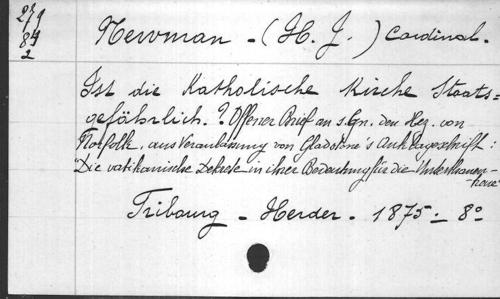 279
84
2
Newman - (H. J.) Cardinal.
Ist die Katholische Kirche Staats=
gefährlich. ? Offener Brief an s. Gn. den Hez. von
Norfolk, aus Veranlassung von Gladstone's Anklageschrift :
"Die vatikanische Dekrete in ihrer Bedeutung für die Unterthanen-
-treue"
Fribourg - Herder - 1875 - 8°